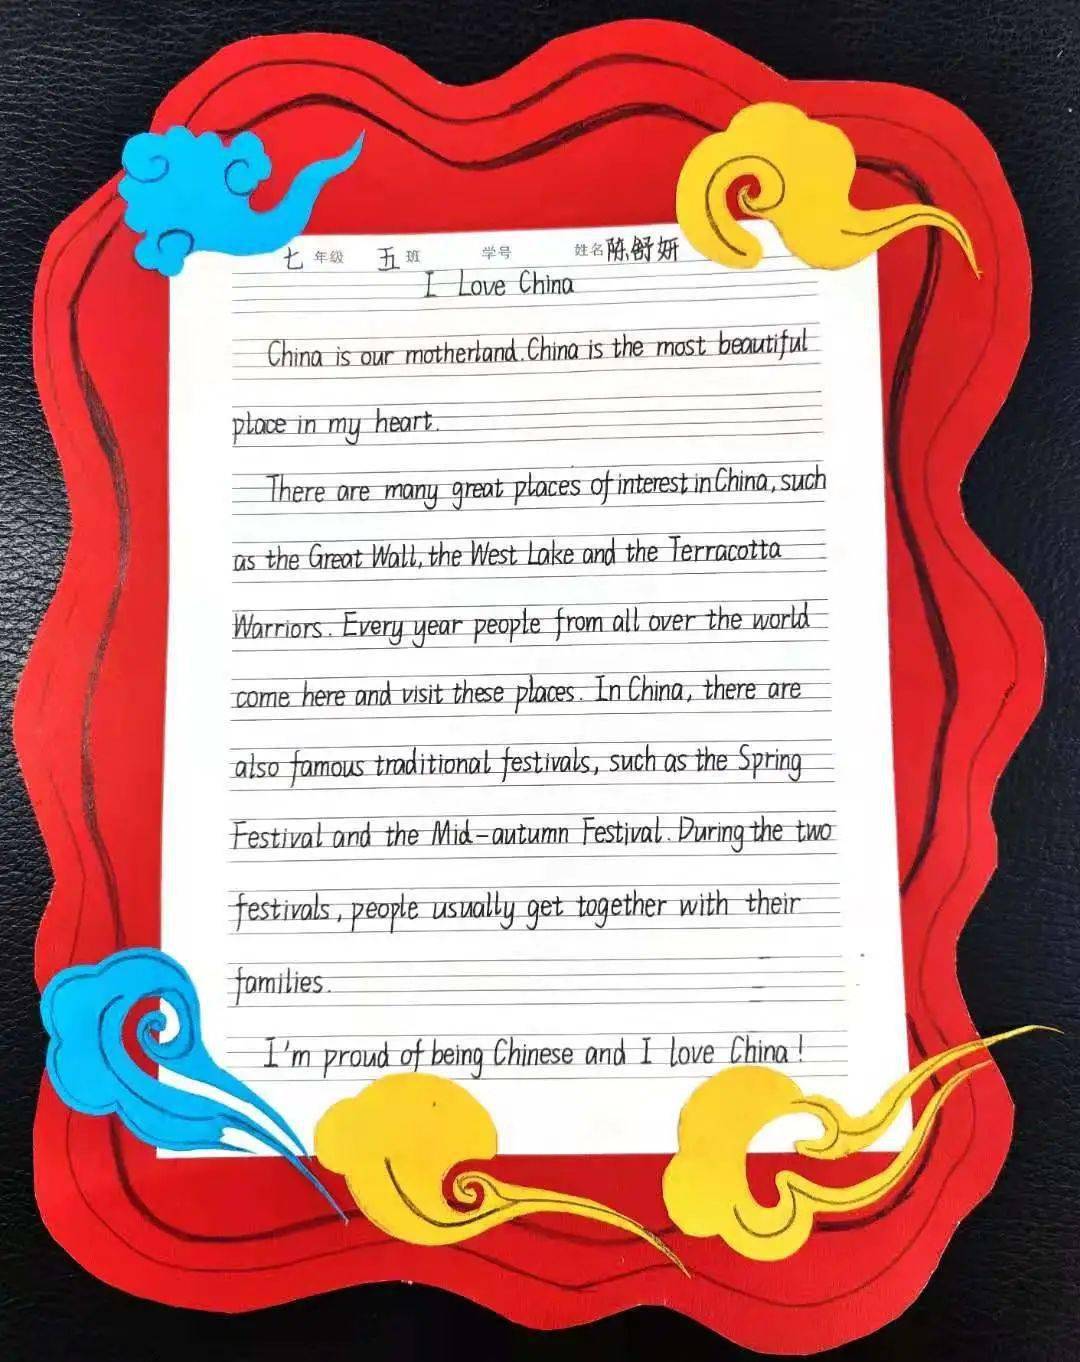 七 年级 五 班 学号 姓名 陈舒妍
I Love China
China is our motherland. China is the most beautiful
place in my heart.
There are many great places of interest in China, such
as the Great Wall, the West Lake and the Terracotta
Warriors. Every year people from all over the world
come here and visit these places. In China, there are
also famous traditional festivals, such as the Spring
Festival and the Mid-autumn Festival. During the two
festivals, people usually get together with their
families.
I'm proud of being Chinese and I love China!